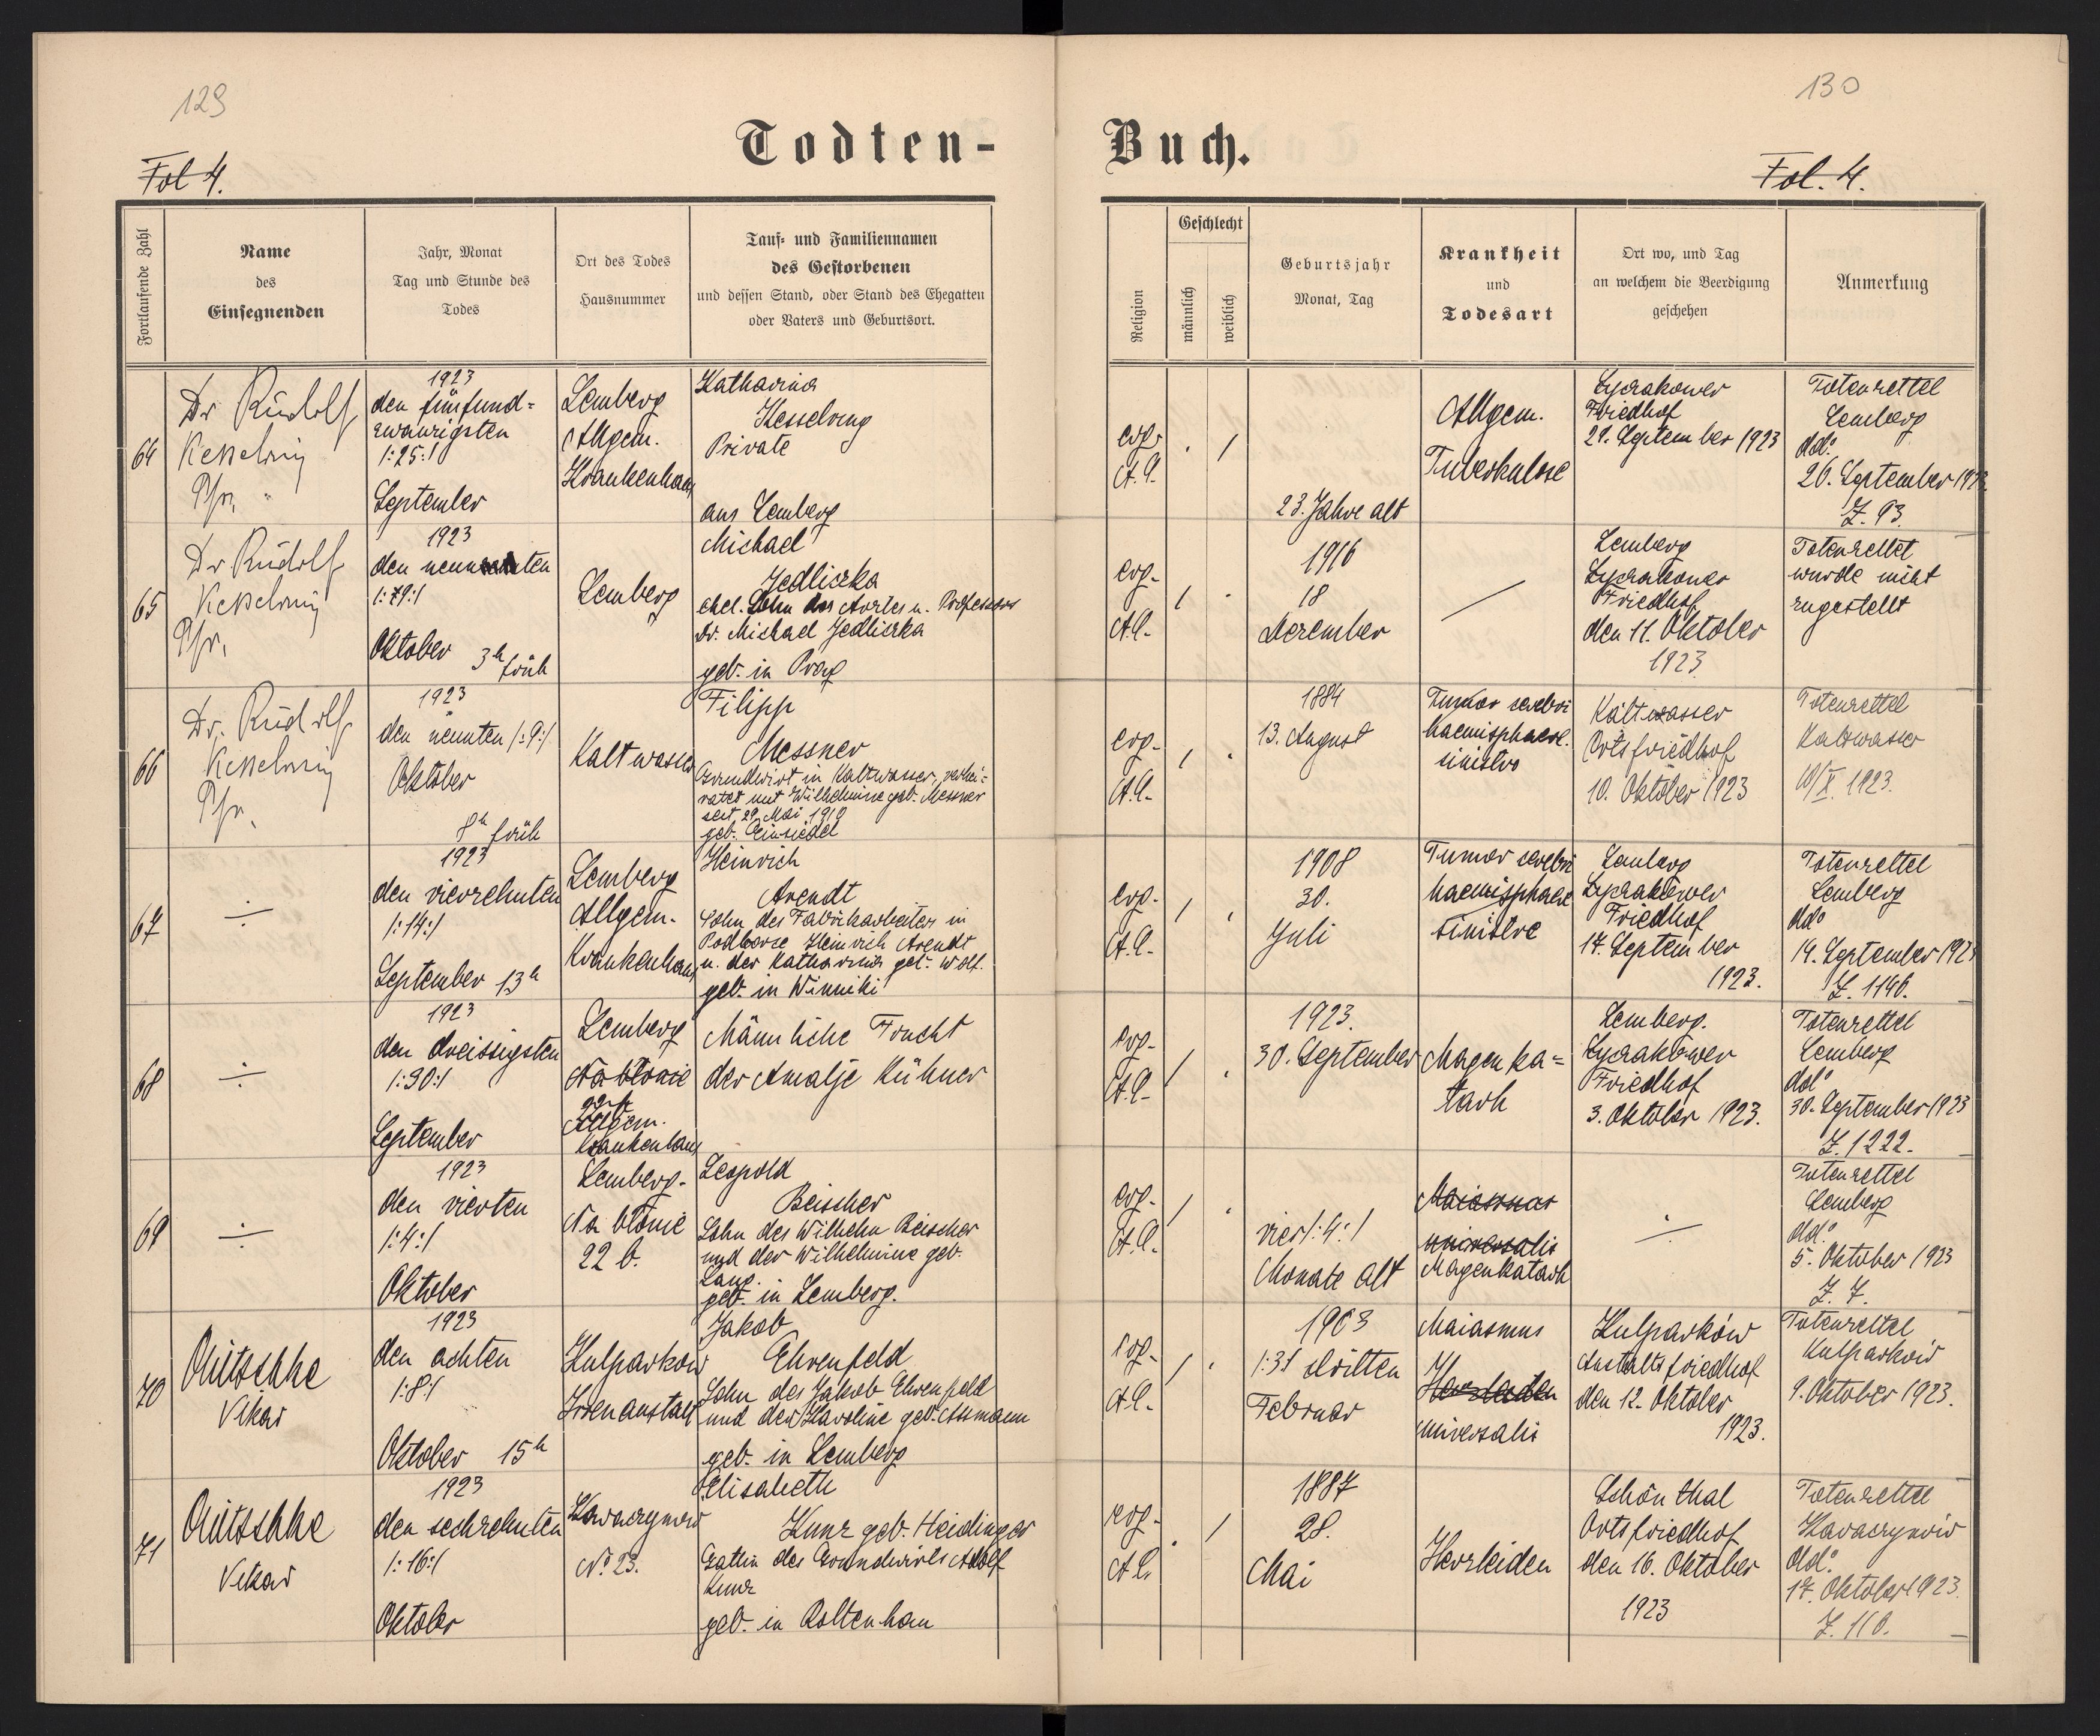 129
130
Todten-
Buch.
Fol 4.
Fol. 4.
Fortlaufende Zahl
Name
des
Einsegnenden
Jahr, Monat
Tag und Stunde des
Todes
Ort des Todes
Hausnummer
Tauf- und Familiennamen
des Gestorbenen
und dessen Stand, oder Stand des Ehegatten
oder Vaters und Geburtsort.
Religion
Geschlecht
männlich
weiblich
Geburtsjahr
Monat, Tag
Krankheit
und
Todesart
Ort wo, und Tag
an welchem die Beerdigung
geschehen
Anmerkung
64
Dr Rudolf
Kesselring
Pfr.
1923
den fünfund=
zwanzigsten
/:25:/
September
Lemberg
Allgem.
Krankenhaus
Katharina
Kesselring
Private
aus Lemberg
evg.
A.C.
. /
23. Jahre alt
Allgem.
Tuberkulose
Lyczakower
Friedhof
September 1923
Totenzettel
Lemberg
dd:
26. September 1923
Z. 93.
65
Dr Rudolf
Kesselring
Pfr.
1923
den
Oktober 3h früh
Lemberg
Michael
Jedliczka
ehel. Sohn des Arztes u. Professors
Dr. Michael Jedliczka
geb. in Prag
evg.
A.C.
/ .
1916
18
Dezember
Lemberg
Lyczakower
Friedhof
den 11. Oktober
1923
Totenzettel
wurde nicht
zugestellt
66
Dr. Rudolf
Kesselring
Pfr.
1923
den neunten /:9:/
Oktober
8h früh
Kaltwasser
Filipp
Messner
Grundwirt in Kaltwasser, verhei-
ratet mit Wilhelmine geb. Messner
seit 29. Mai 1910
geb. Einsiedel
evg.
A.C.
/ .
1884
13. August
Tumor cerebri
haemisphaere.
sinistro
Kaltwasser
Ortsfriedhof
10. Oktober 1923
Totenzettel
Kaltwasser
10/X. 1923.
67
÷
1923
den vierzehnten
/:14:/
September 13h
Lemberg
Allgem.
Krankenhaus
Heinrich
Arendt
Sohn des Fabrikarbeiters in
Podborze Heinrich Arendt
u. der Katharina geb. Wolf.
geb. in Winniki
evg.
A.C.
/ .
1908
30.
Juli
Tumor cerebri
haemisphaere
sinistre
Lemberg
Lyczakower
Friedhof
17. September
1923.
Totenzettel
Lemberg
dd:
14. September 1923
Z. 1146.
68
÷
1923
den dreissigsten
/:30:/
September
Lemberg
Na błonie
22 b
Allgem.
Krankenhaus
Männliche Frucht
der Amalje Kühner
evg.
A.C.
/ .
1923.
30. September
Magen ka=
tarh
Lemberg.
Lyczakower
Friedhof
3. Oktober 1923.
Totenzettel
Lemberg
dd:
30. September 1923
Z. 1222.
69
÷
1923
den vierten
/:4:/
Oktober
Lemberg.
Na błonie
22 b.
Leopold
Beischer
Sohn des Wilhelm Beischer
und der Wilhelmine geb.
Lang.
geb. in Lemberg.
evg.
A.C.
/ .
vier /:4:/
Monate alt
Maiasmus
universalis
Magenkatarh
÷
Totenzettel
Lemberg
dd:
5. Oktober 1923
Z. 7.
70
Nitschke
Vikar
1923
den achten
/:8:/
Oktober 15h
Kulparkow
Irrenanstalt
Jakob
Ehrenfeld
Sohn des Jakob Ehrenfeld
und der Karoline geb. Assmann
geb. in Lemberg
evg.
A.C.
/ .
1903
/:3:/ dritten
Februar
Maiasmus
universalis
Kulparków
Anstaltsfriedhof
den 12. Oktober
1923.
Totenzettel
Kulparków
9. Oktober 1923.
71
Nitschke
Vikar
1923
den sechzehnten
/:16:/
Oktober
No 23.
Elisabeth
Kunz geb. Heidinger
Gattin des Grundwirts Adolf
Kunz
geb. in Rottenhan
evg.
A.C.
. /
1887
28.
Mai
Herzleiden
Schönthal
Ortsfriedhof
den 16. Oktober
1923
Totenzettel
dd:
17. Oktober 1923.
Z. 110.